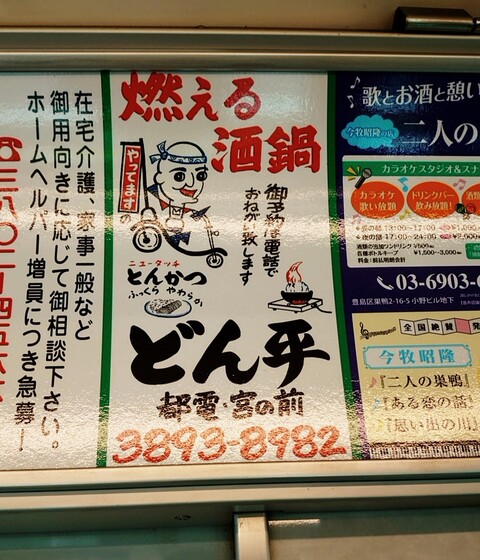 在宅介護、家事一般など
御用向きに応じて御相談下さい。
ホームヘルパー増員につき急募!
燃える
酒鍋
やってます
の
御予約は電話で
おねがい致します
ニュータッチ
とんかつ
ふっくら やわらか。
どん平
都電・宮の前
3893-8982
歌とお酒と憩い
今牧昭隆の店
二人の
カラオケスタジオ&スナ
カラオケ
歌い放題
ドリンクバー
飲み放題!
昼の部 13:00~17:00
夜の部 17:00~24:00
酒類の追加ワンドリンク ¥500~
各種ボトルキープ ¥1,500~3,000
03-6903-6
豊島区巣鴨2-16-5 小野ビル地下
全国絶賛発
今牧昭隆
『二人の巣鴨』
『ある恋の話』
『思い出の川』